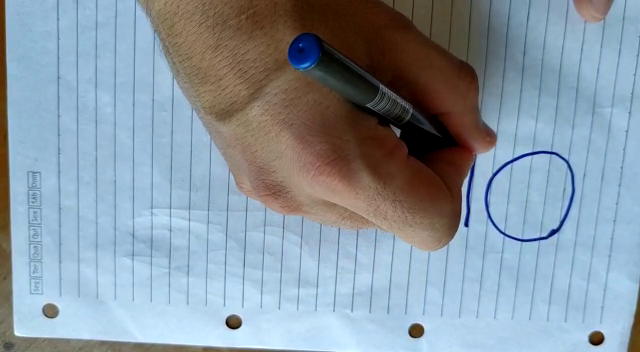 Seg Ter Qua Qui Sex Sáb Dom